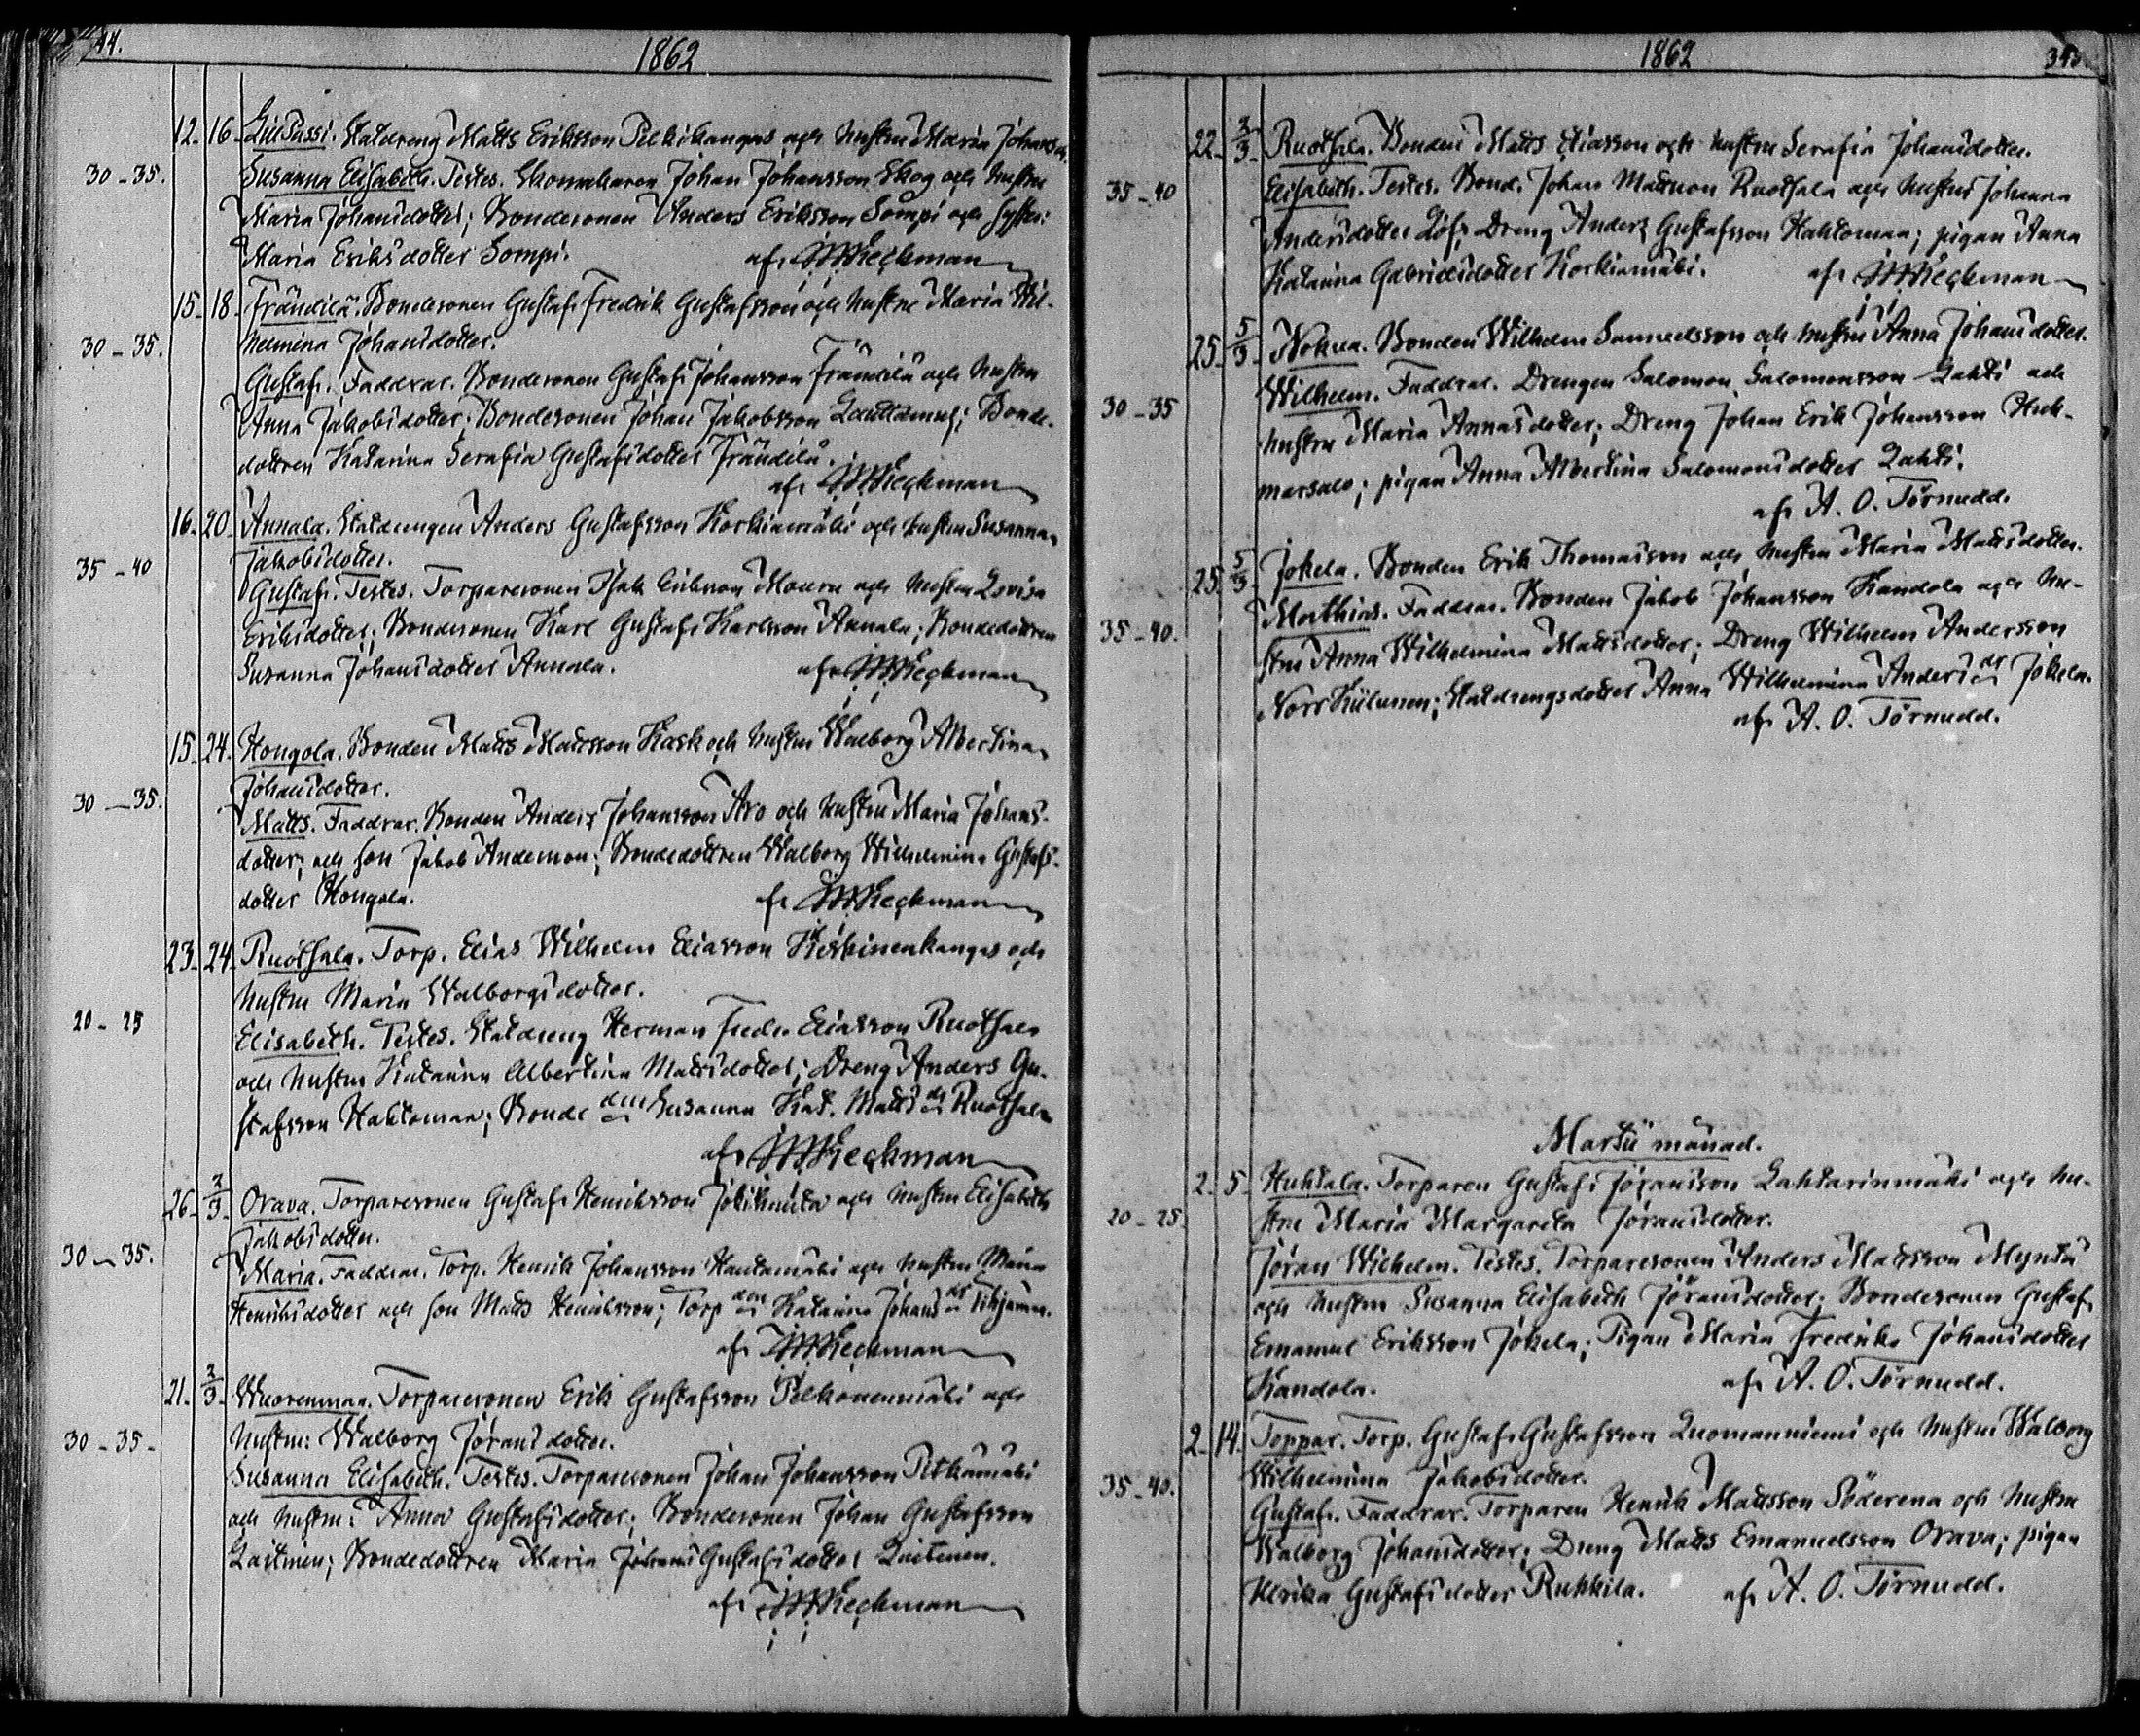 44.
1862
12. 16. Statdreng Matts Eriksson och hustru Maria
30-35. Susanna Elisabeth. Testes. Skomakaren Johan Johansson Skog och hustru
Maria Johansdotter; Bondesonen Anders Eriksson Sompi och
Maria Eriksdotter Sompi. af
15. 18. Frändilä. Bondesonen Gustaf Fredrik Gustafsson och hustru Maria Wil-
30-35. helmina Johansdotter.
Gustaf. Faddrar. Bondesonen Gustaf Johansson Frändilä och hustru
Anna Jakobsdotter; Bondesonen Johan Jakobsson Bonde-
dottren Katarina Serafia Gustafsdotter Frändilä.
af
16. 20. Annala. Statdrengen Anders Gustafsson Korkiamäki och hustru Susanna
35-40 Jakobsdotter.
Gustaf. Testes. Torparesonen och hustru Lovisa
Eriksdotter; Bondesonen Karl Gustaf Karlsson Annala; Bondedottren
Susanna Johansdotter Annala. af
15. 24. Hongola. Bonden Matts Mattsson Kask och hustru Walborg Albertina
30-35. Johansdotter.
Matts. Faddrar. Bonden Anders Johansson Aro och hustru Maria Johans-
dotter; och son Jakob Andersson; Bondedottren Walborg Wilhelmina Gustafs-
dotter Hongola. af
23. 24. Ruotsala. Torp. Elias Wilhelm Eliasson och
hustru Maria Walborgsdotter.
20-25 Elisabeth. Testes. Statdreng Herman Fredr. Eliasson Ruotsala
och hustru Katarina Albertina Mattsdotter; Dreng Anders Gu-
stafsson Hahtomaa; Bonde dttr Susanna Kat. Matts dr Ruotsala
af
26. 2/3. Orava. Torparesonen Gustaf Henriksson och hustru Elisabeth
30-35. Jakobsdotter.
Maria. Faddrar. Torp. Henrik Johansson Hautamäki och hustru Maria
Henriksdotter och son Matts Henriksson; Torp Katarina Johans dr
af
21. 2/3. Wuorenmaa. Torparesonen Erik Gustafsson Pelkonenmäki och
30-35. hustru: Walborg Jöransdotter.
Susanna Elisabeth. Testes. Torparesonen Johan Johansson Pitkämäki
och hustru: Anna Gustafsdotter; Bondesonen Johan Gustafsson
Laitinen; Bondedottren Maria Gustafsdotter Laitinen.
af
1862
345.
22. 2/3. Ruotsala. Bonden Matts Eliasson och hustru Serafia Johansdotter.
35-40 Elisabeth. Testes. Bond. Johan Mattsson Ruotsala och hustru Johanna
Andersdotter Dreng Anders Gustafsson Hahtomaa; pigan Anna
Katarina Gabrielsdotter Korkiamäki. af
25. 5/3. Bonden Wilhelm Samuelsson och hustru Anna Johansdotter.
30-35 Wilhelm. Faddrar. Drengen Salomon Salomonsson Lahti och
hustru Maria Annasdotter; Dreng Johan Erik Johansson Huh-
marsalo; pigan Anna Albertina Salomonsdotter Lahti.
af A. O. Törnudd.
25. 5/3. Jokela. Bonden Erik Thomasson och hustru Maria Mattsdotter.
35-40. Mathias. Faddrar. Bonden Jakob Johansson Kandola och hu-
stru Anna Wilhelmina Mattsdotter; Dreng Wilhelm Andersson
Statdrengsdotter Anna Wilhelmina Anders dr Jokela.
af A. O. Törnudd.
Martii månad.
2. 5. Huhtala. Torparen Gustaf Jöransson Lahtarinmäki och hu-
20-25. stru Maria Margareta Jöransdotter.
Jöran Wilhelm. Testes. Torparesonen Anders Mattsson
och hustru Susanna Elisabeth Jöransdotter; Bondesonen Gustaf
Emanuel Eriksson Jokela; Pigan Maria Fredrika Johansdotter
Kandola. af A. O. Törnudd.
2. 14. Toppar. Torp. Gustaf Gustafsson Luomanniemi och hustru Walborg
35-40. Wilhelmina Jakobsdotter.
Gustaf. Faddrar. Torparen Henrik Mattsson Söderena och hustru
Walborg Johansdotter; Dreng Matts Emanuelsson Orava; pigan
Ulrika Gustafsdotter Ruhkila. af A. O. Törnudd.